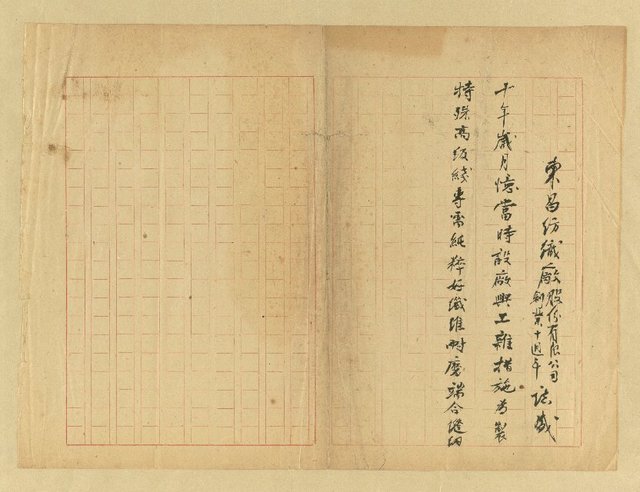 東昌紡織廠股份有限公司創業十週年誌盛
十年歲月憶當時設廠興工難措施為製
特殊高級綫專需純粹好纖維耐磨端合縫紉